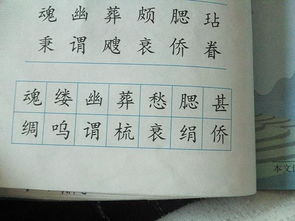 魂 幽 葬 颇 腮 玷
秉 谓 飕 衰 侨 眷
魂 缕 幽 葬 愁 腮 甚
绸 呜 谓 梳 衰 绢 侨
本文